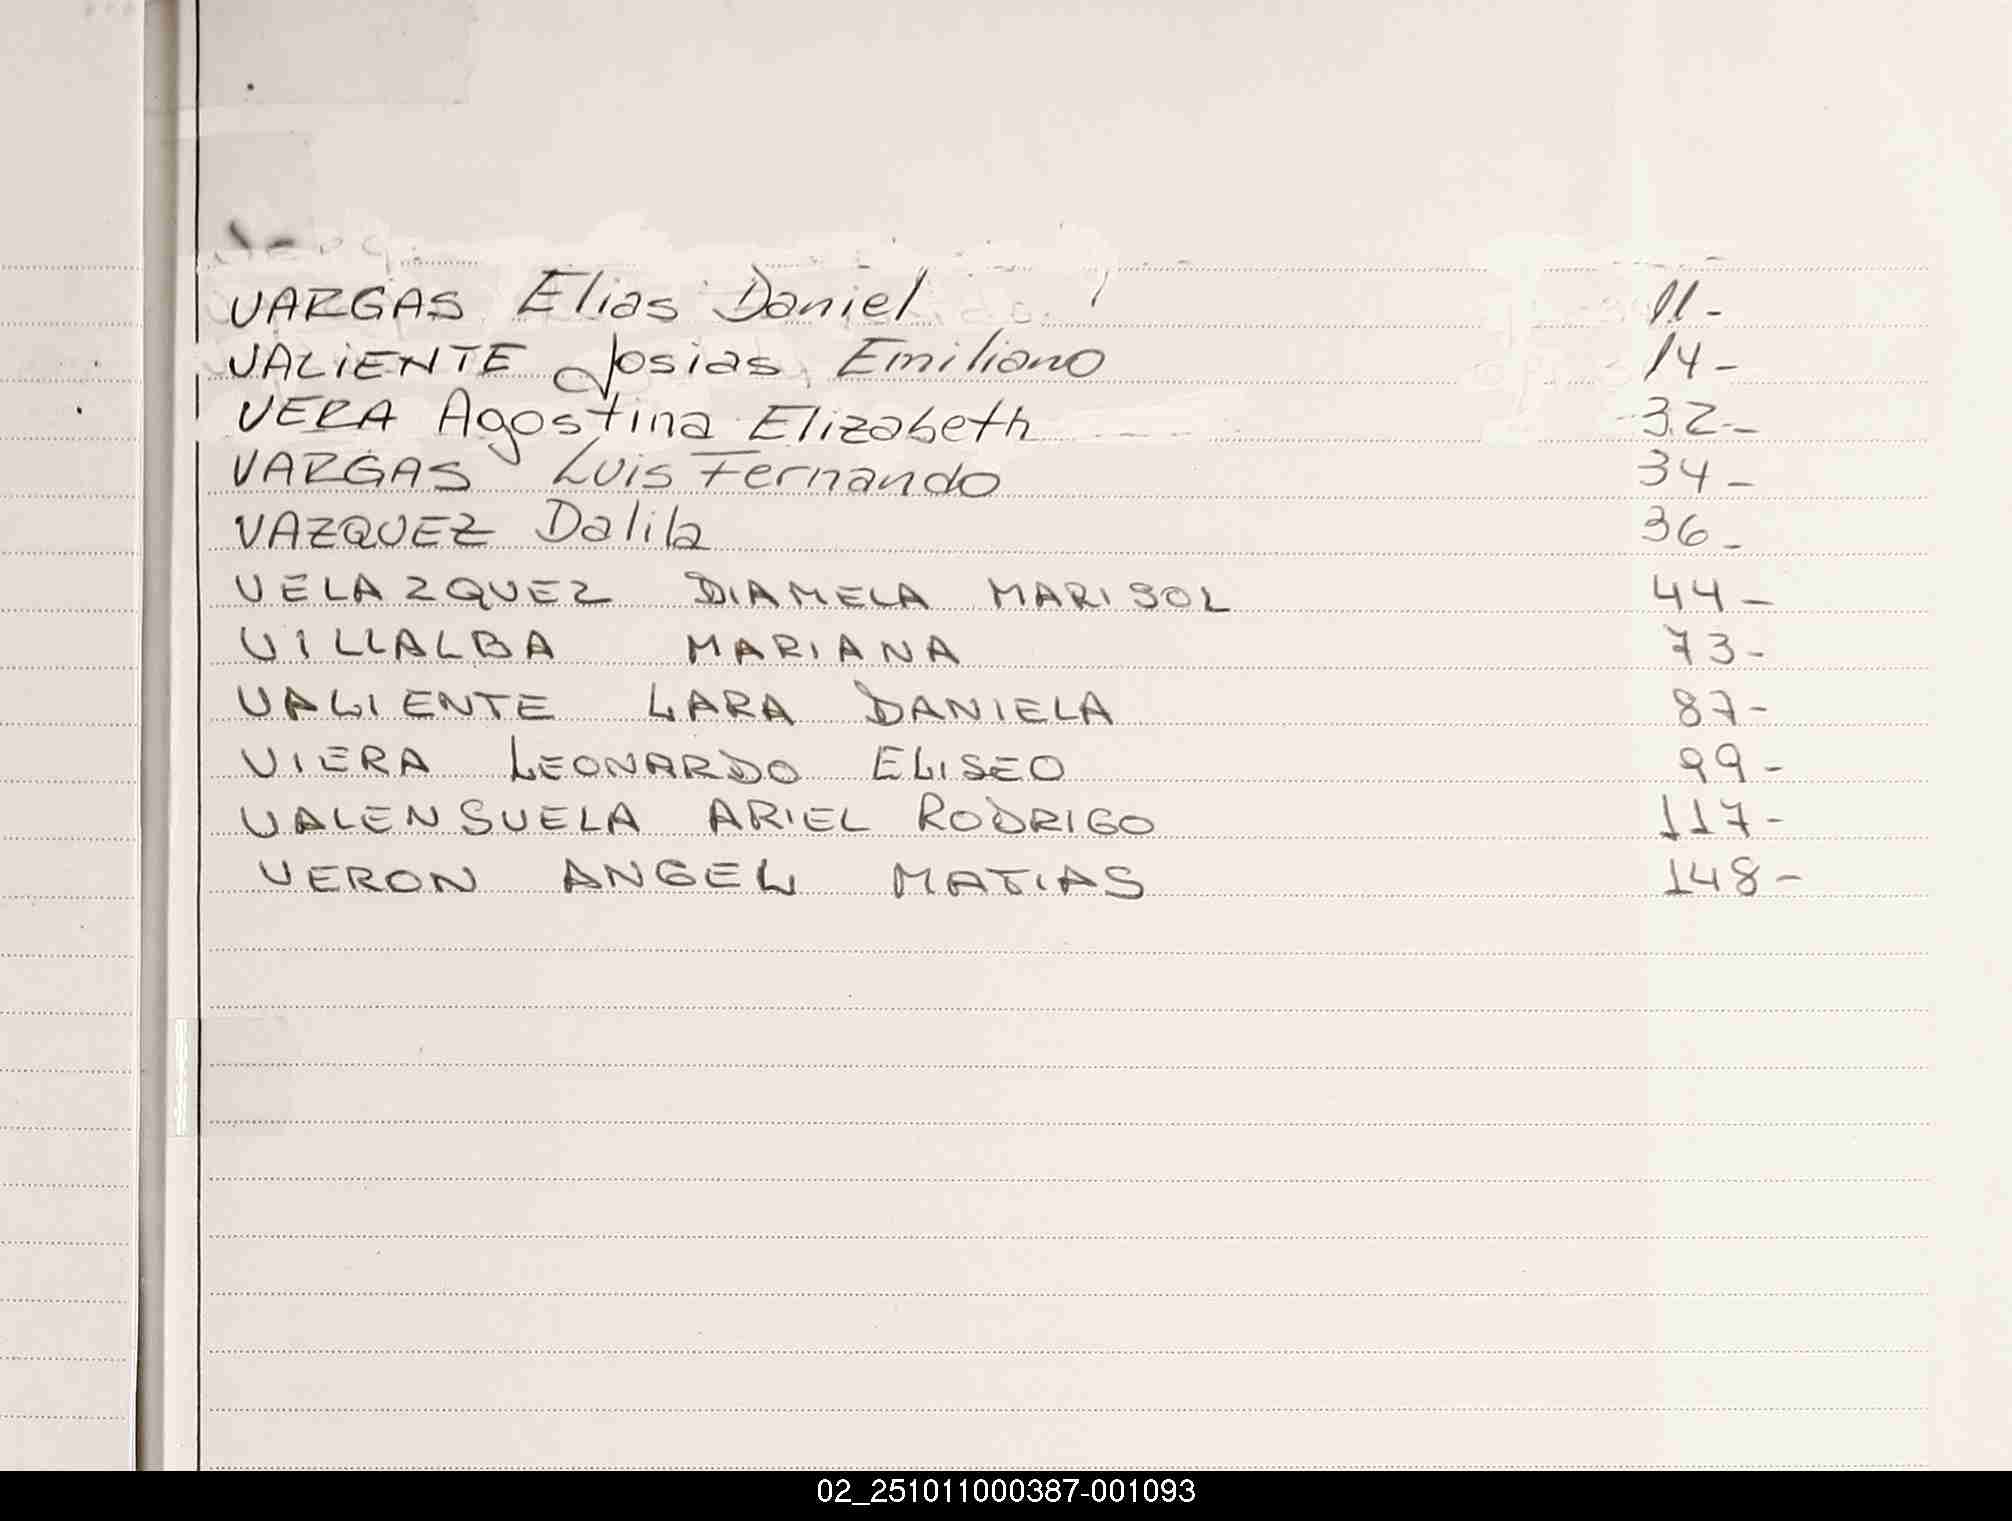 VARGAS Elias Daniel 11-
VALIENTE Josias Emiliano 14-
VERA Agostina Elizabeth 32-
VARGAS Luis Fernando 34-
VAZQUEZ Dalila 36-
VELAZQUEZ DIAMELA MARISOL 44-
VILLALBA MARIANA 73-
VALIENTE LARA DANIELA 87-
VIERA LEONARDO ELISEO 99-
VALENSUELA ARIEL RODRIGO 117-
VERON ANGEL MATIAS 148-
02_251011000387-001093